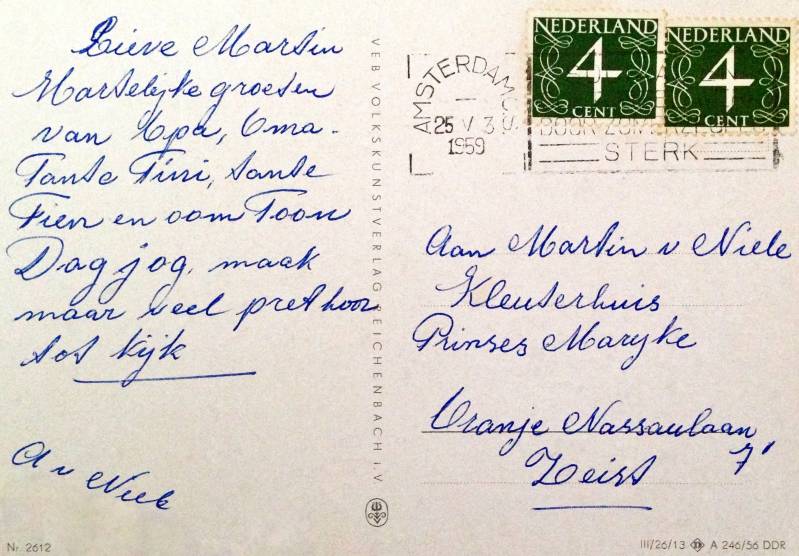 Lieve Martin
Hartelijke groeten
van Opa, Oma-
Tante Fini, tante
Fien en oom Toon
Dag jog, maak
maar veel pret hoor
tot kijk
A v Niele
VEB VOLKSKUNSTVERLAG REICHENBACH i. V
Nr. 2612
NEDERLAND
4
CENT
NEDERLAND
4
CENT
AMSTERDAM C.S
25 V 3
1959
STERK
Aan Martin v Niele
Kleuterhuis
Prinses Maryke
Oranje Nassaulaan
7'
Zeist
III/26/13 A 246/56 DDR